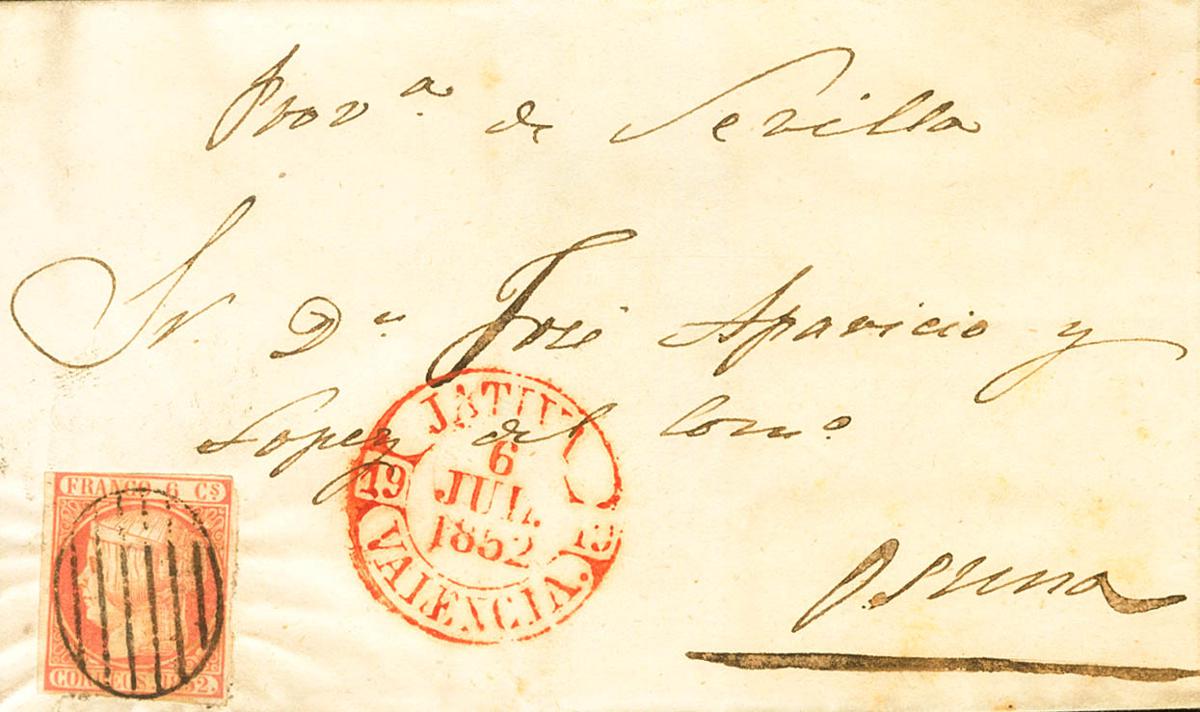 Provª de Sevilla
Sr. Dⁿ José Aparicio y
Lopez del Comº
Osuna
JATIVA
6
JUL.
1852
19
VALENCIA.
FRANCO 6 Cs
CORREOS 1852.